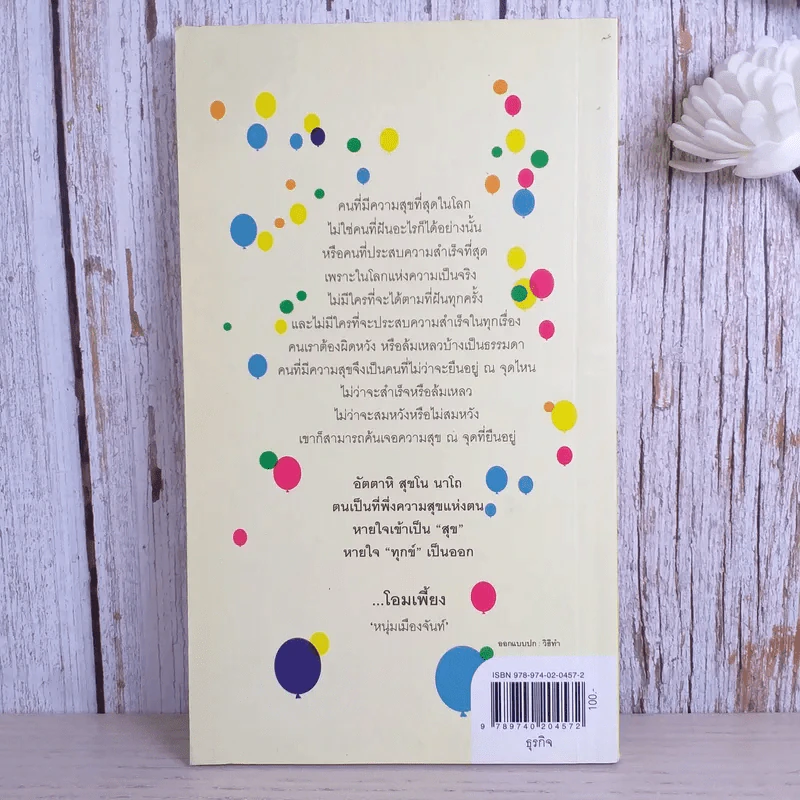 คนที่มีความสุขที่สุดในโลก
ไม่ใช่คนที่ฝันอะไรก็ได้อย่างนั้น
หรือคนที่ประสบความสำเร็จที่สุด
เพราะในโลกแห่งความเป็นจริง
ไม่มีใครที่จะได้ตามที่ฝันทุกครั้ง
และไม่มีใครที่จะประสบความสำเร็จในทุกเรื่อง
คนเราต้องผิดหวัง หรือล้มเหลวบ้างเป็นธรรมดา
คนที่มีความสุขจึงเป็นคนที่ไม่ว่าจะยืนอยู่ ณ จุดไหน
ไม่ว่าจะสำเร็จหรือล้มเหลว
ไม่ว่าจะสมหวังหรือไม่สมหวัง
เขาก็สามารถค้นเจอความสุข ณ จุดที่ยืนอยู่
อัตตาหิ สุขโน นาโถ
ตนเป็นที่พึ่งความสุขแห่งตน
หายใจเข้าเป็น “สุข”
หายใจ “ทุกข์” เป็นออก
...โอมเพี้ยง
‘หนุ่มเมืองจันท์’
ออกแบบปก : วิธีทำ
ISBN 978-974-02-0457-2
9 789740 204572
100.-
ธุรกิจ